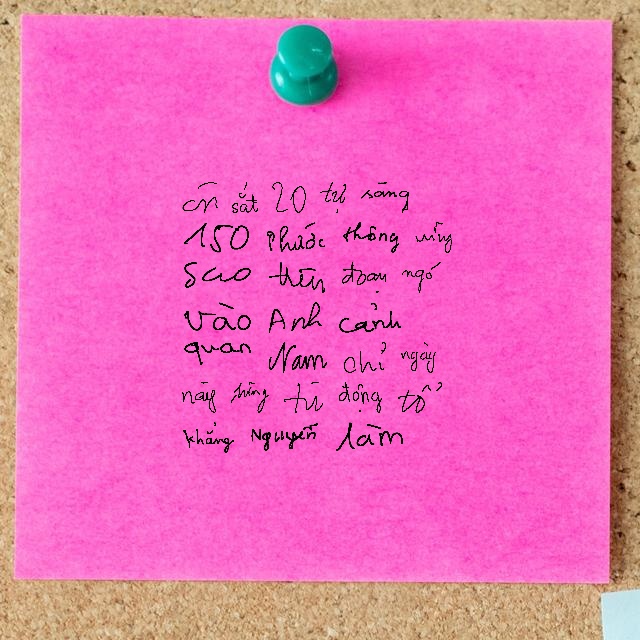 ổn sắt 20 tự sāng
150 Phước thông uống
sao trên đoạn ngó
vào Anh cảnh
quan Nam chỉ ngày
này từ động tổ
khăng Nguyễn làm